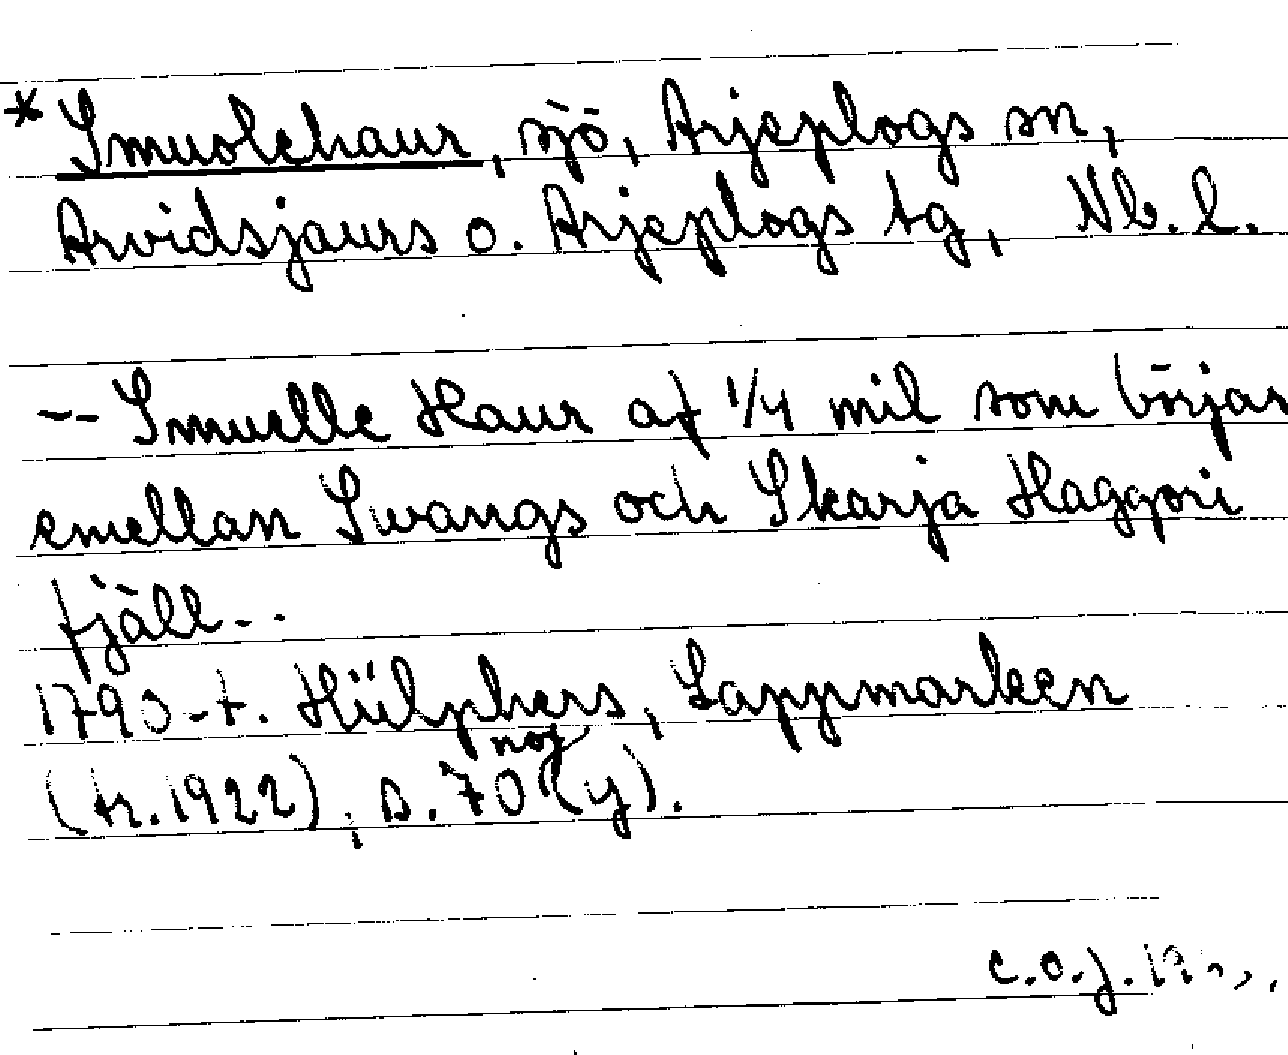 * Smuolehaur, sjö, Arjeplogs sn,
Arvidsjaurs o. Arjeplogs tg, Nb. l.
-- Smuelle Haur af 1/4 mil som börjas
emellan Swangs och Skarja Haggori
fjäll--
1790-t. Hülphers, Lappmarken
(tr. 1922), s. 70 not (y).
C.O.J.